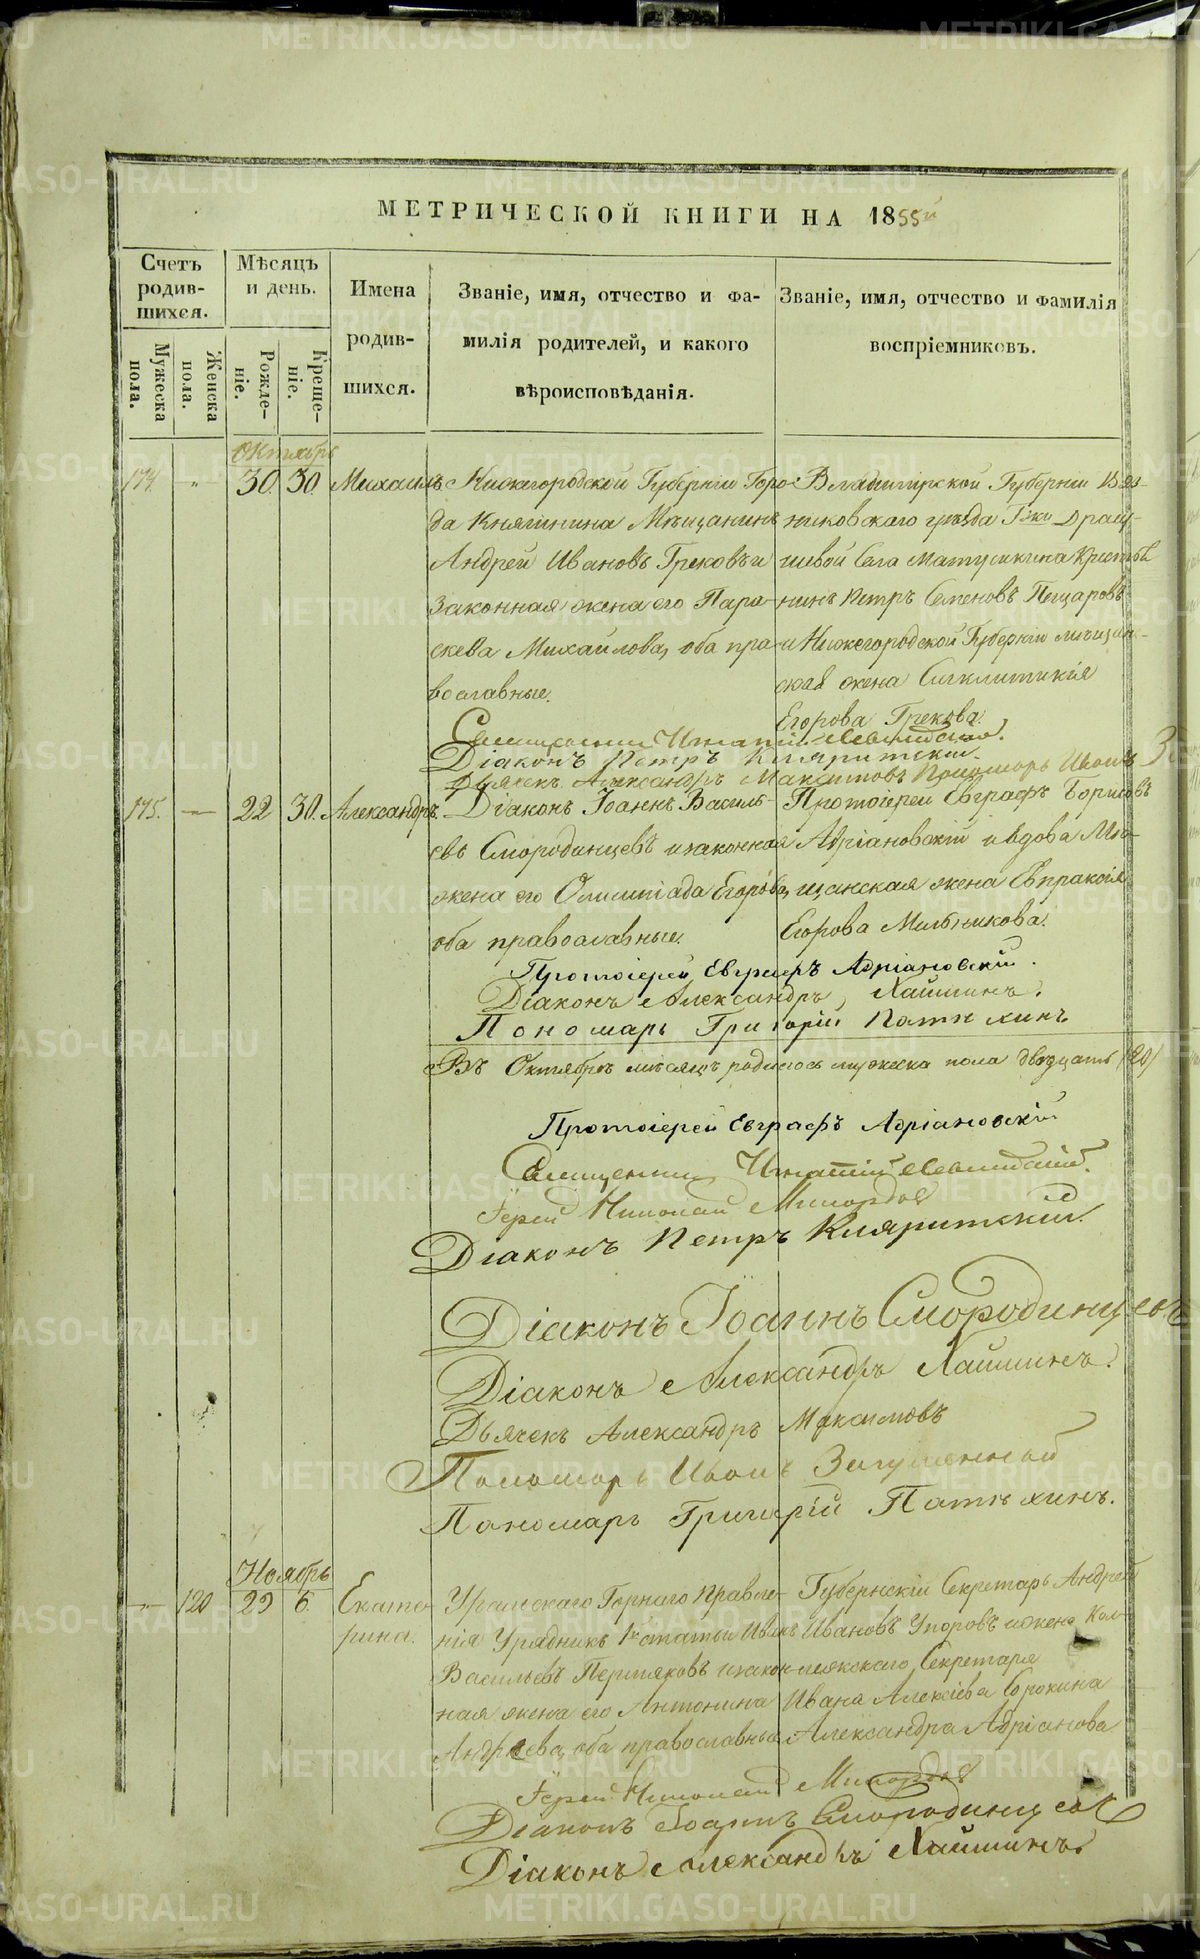 МЕТРИЧЕСКОЙ КНИГИ НА 1855й
Счетъ родив-шихся.
Мѣсяцъ и день.
Имена родив-шихся.
Званіе, имя, отчество и фа-милія родителей, и какого вѣроисповѣданія.
Званіе, имя, отчество и фамилія воспріемниковъ.
Мужеска пола.
Женска пола.
Рожде-ніе.
Креще-ніе.
Октябрь
174. " 30. 30. Михаилъ.
Нижегородской Губерніи Горо-
да Княгинина Мѣщанинъ
Андрей Ивановъ Грековъ и
законная жена его Пара-
скева Михайлова, оба пра-
вославные.
Владимірской Губерніи Вяз-
никовскаго уѣзда Гжи
села Матушкина Кресть
нинъ Петръ Семеновъ Пищаровъ
и Нижегородской Губерніи мѣщан-
ская жена Сигклитикія
Егорова Грекова.
Священникъ Игнатій
Діаконъ Петръ Кляритскій
Дьячекъ Александръ Максимовъ Пономарь Иванъ
175. — 22 30. Александръ.
Діаконъ Іоаннъ Василь-
евъ Смородинцевъ и законная
жена его Олимпіада Егорова,
оба православные.
Протоіерей Евграфъ Борисовъ
Адріановскій и вдова Мѣ-
щанская жена Евпраксія
Егорова Мильникова.
Протоіерей Евграфъ Адріановскій.
Діаконъ Александръ Хайминъ.
Пономарь Григорій Патыхинъ
Въ Октябрѣ мѣсяцѣ родилось мужеска пола двадцать /20/
Протоіерей Евграфъ Адріановскій
Священникъ Игнатій
Іерей Николай Милордовъ
Діаконъ Петръ Кляритскій.
Діаконъ Іоаннъ Смородинцевъ
Діаконъ Александръ Хайминъ.
Дьячекъ Александръ Максимовъ
Пономарь Иванъ
Пономарь Григорій Патыхинъ.
Ноябрь
— 120 29 6. Екате-
рина.
Уральскаго Горнаго Правле-
нія Урядникъ 1й статьи Иванъ
Васильевъ Пермяковъ и закон-
ная жена его Антонина
Андреева, оба православные
Губернскій Секретарь Андрей
Ивановъ Упоровъ и жена Кол-
лежскаго Секретаря
Ивана Алексіева Сорокина
Александра Адріанова
Іерей Николай Милордовъ
Діаконъ Іоаннъ Смородинцевъ
Діаконъ Александръ Хайминъ.
METRIKI.GASO-URAL.RU